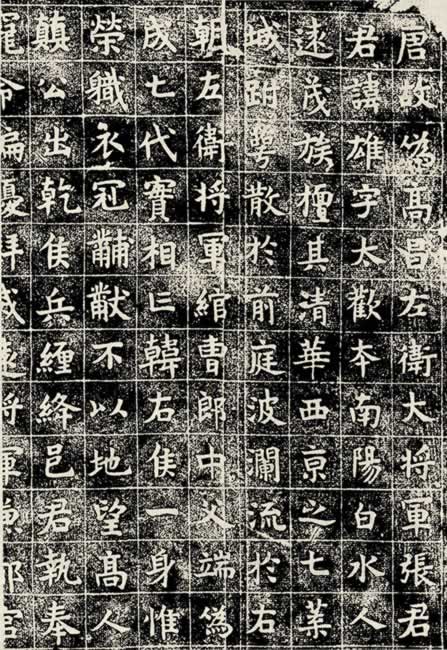 唐故偽高昌左衛大将軍張君
君諱雄字太歡夲南陽白水人
遠茂族檀其清華西京之七葉
城跗萼散於前庭波瀾流於右
朝左衛将軍綰曹郎中父端偽
成七代賓相匹韓右侯一身惟
榮職衣冠黼黻不以地望高人
鎮公出乾侯兵纏絳邑君執奉
寵命偏優拜威遠将軍兼都官